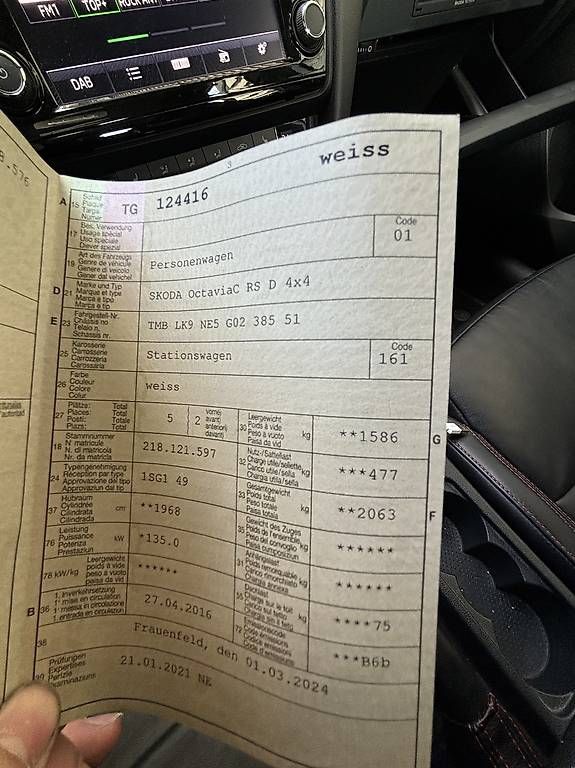 FM1
TOP+
DAB
A 15 Schild
Plaque
Targa
Numer
TG 124416 weiss
17 Bes. Verwendung
Usage spécial
Uso speciale
Diever spezial
Code
01
19 Art des Fahrzeugs
Genre de véhicule
Genere di veicolo
Gener dal vehichel
Personenwagen
D 21 Marke und Typ
Marque et type
Marca e tipo
Marca e tip
SKODA OctaviaC RS D 4x4
E 23 Fahrgestell-Nr.
Châssis no
Telaio n.
Schassis nr.
TMB LK9 NE5 G02 385 51
25 Karosserie
Carrosserie
Carrozzeria
Carossaria
Stationswagen
Code
161
26 Farbe
Couleur
Colore
Colur
weiss
27 Plätze: Total
Places: Total
Posti: Totale
Plazs: Total
5 2 vorne)
avant)
anteriori)
davant)
30 Leergewicht
Poids à vide
Peso a vuoto
Paisa da vid
kg **1586 G
18 Stammnummer
N° matricule
N. di matricola
Nr. da matricla
218.121.597
32 Nutz-/Sattellast
Charge utile/sellette
Carico utile/sella
Chargia utila/sella
kg ***477
24 Typengenehmigung
Réception par type
Approvazione del tipo
Approvaziun dal tip
1SG1 49
33 Gesamtgewicht
Poids total
Peso totale
Paisa totala
kg **2063 F
37 Hubraum
Cylindrée
Cilindrata
Cilindrada
cm³ **1968
35 Gewicht des Zuges
Poids de l'ensemble
Peso del convoglio
Paisa cumposiziun
kg ******
76 Leistung
Puissance
Potenza
Prestaziun
kW *135.0
31 Anhängelast
Poids remorquable
Carico rimorchiato
Chargia annexa
kg ******
78 kW/kg Leergewicht
poids à vide
peso a vuoto
paisa da vid
******
55 Dachlast
Charge sur le toit
Carico sul tetto
Chargia sin il tetg
kg ****75
B 36 1. Inverkehrsetzung
1re mise en circulation
1a messa in circolazione
1. entrada en circulaziun
27.04.2016
72 Emissionscode
Code émissions
Codice emissioni
Code d'emissiuns
***B6b
38 Frauenfeld, den 01.03.2024
39 Prüfungen
Expertises
Perizie
Examinaziuns
21.01.2021 NE